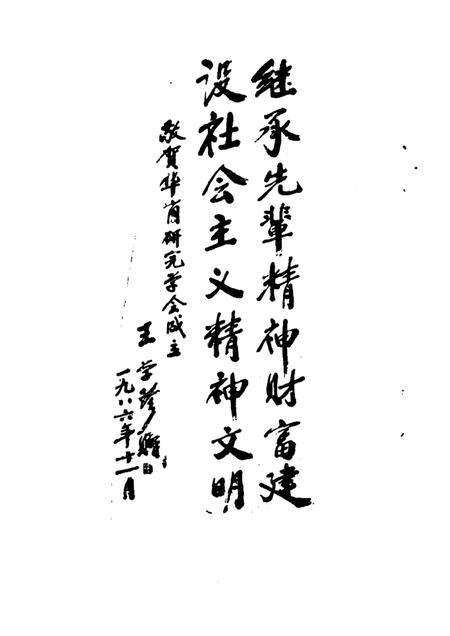 继承先辈精神财富建
设社会主义精神文明
敬贺华肖研究学会成立
王学
一九八六年十一月